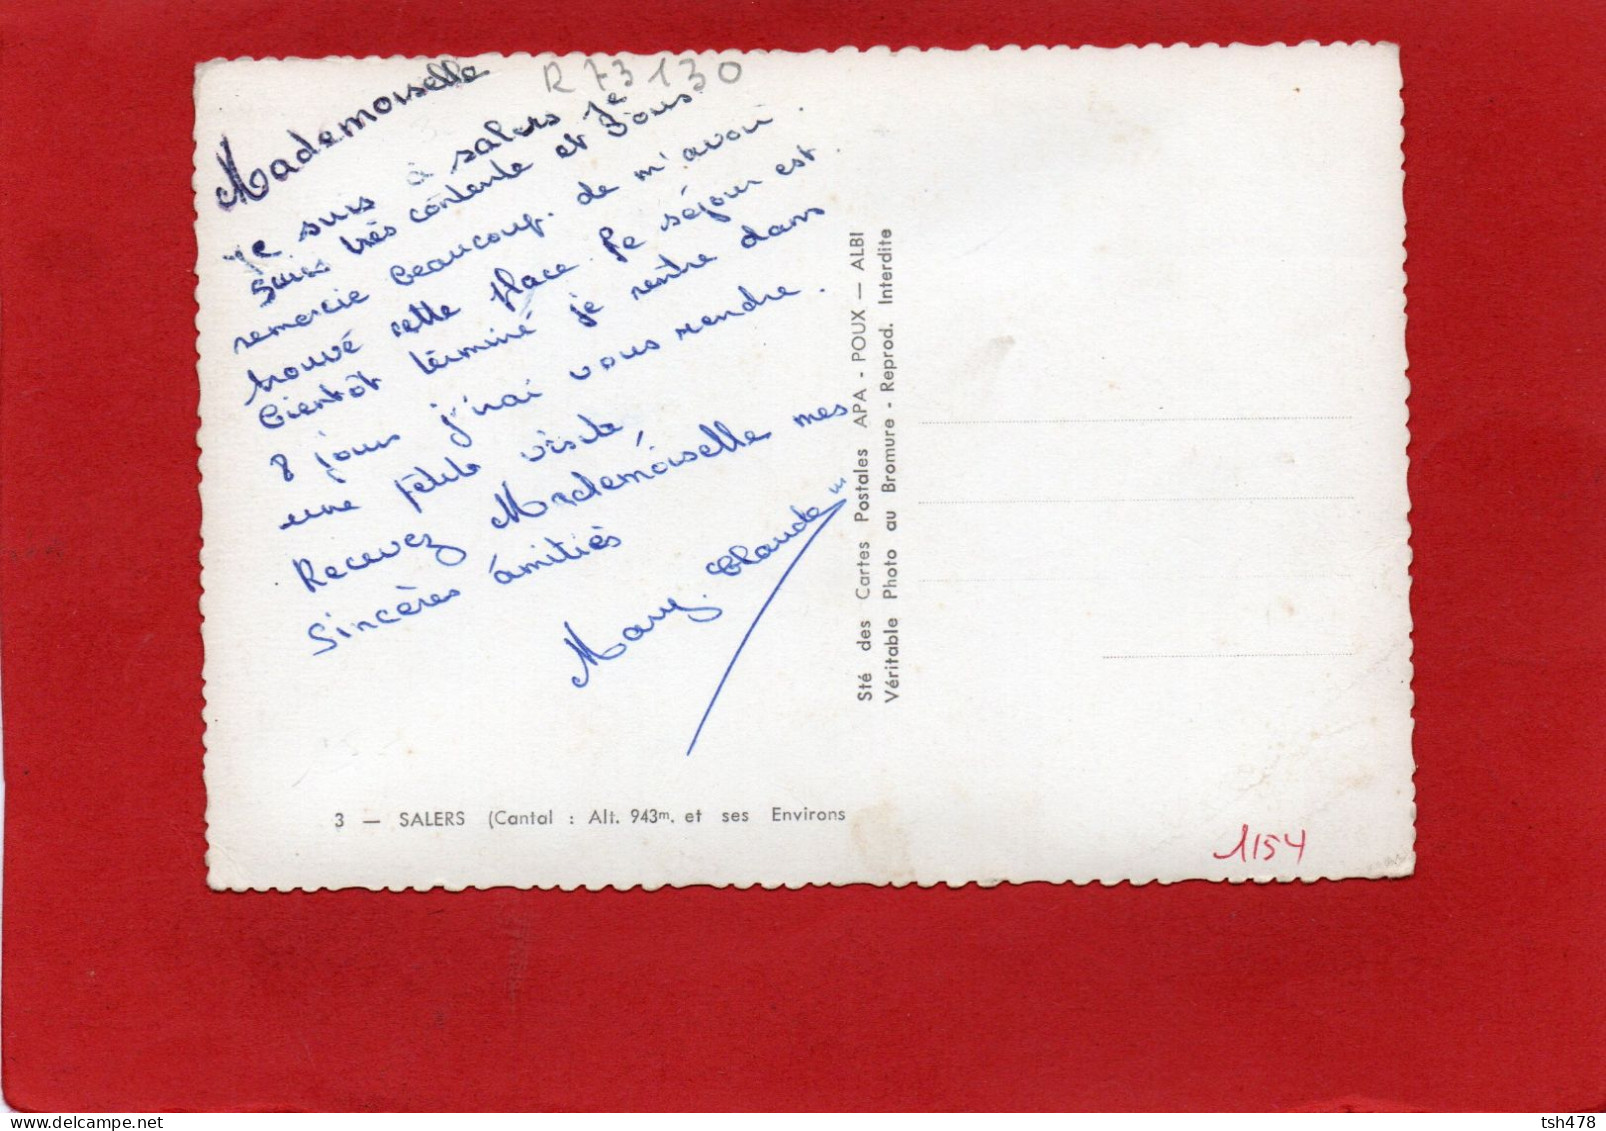 R 73130
Mademoiselle
Je suis à salers je
suis très contente et vous
remercie beaucoup. de m'avoir
trouvé cette place. le séjour est.
bientôt terminé je rentre dans
8 jours j'irai vous rendre.
une petite visite,
Recevez Mademoiselle mes
sincères amitiés
Mary. Claude
Sté des Cartes Postales APA - POUX — ALBI
Véritable Photo au Bromure - Reprod. Interdite
3 — SALERS (Cantal : Alt. 943m. et ses Environs
1154
tsh478